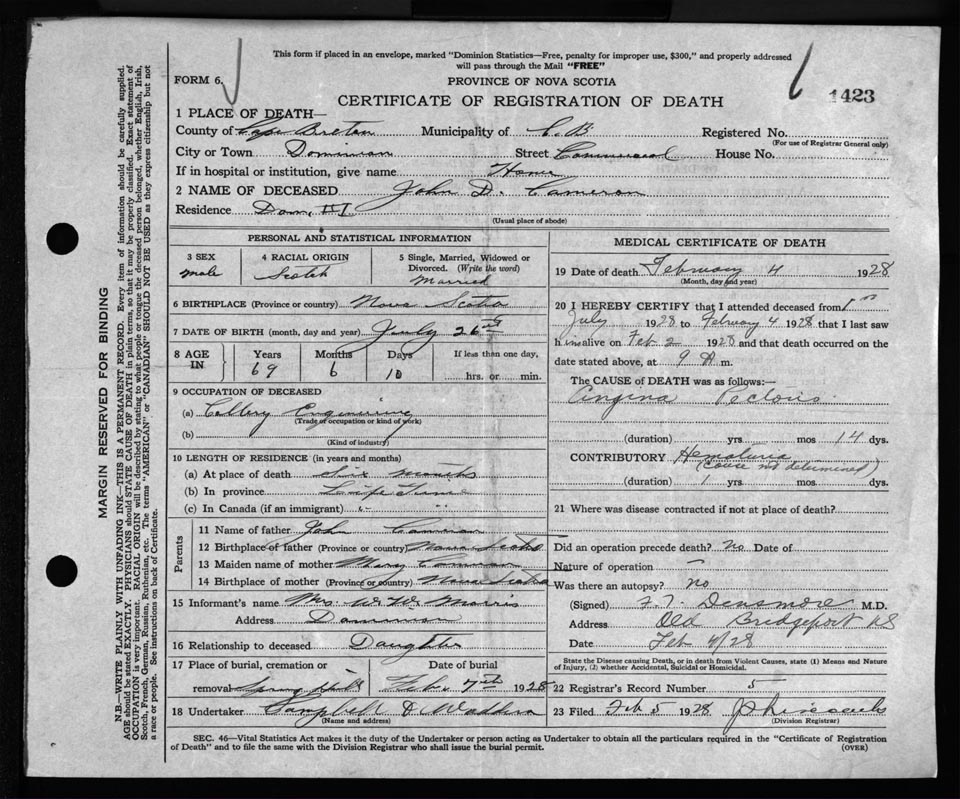 This form if placed in an envelope, marked "Dominion Statistics—Free, penalty for improper use, $300," and properly addressed
will pass through the Mail "FREE"
FORM 6.
PROVINCE OF NOVA SCOTIA
CERTIFICATE OF REGISTRATION OF DEATH
1423
MARGIN RESERVED FOR BINDING
N.B—WRITE PLAINLY WITH UNFADING INK—THIS IS A PERMANENT RECORD. Every item of information should be carefully supplied.
AGE should be stated EXACTLY. PHYSICIANS should STATE CAUSE OF DEATH in plain terms, so that it may be properly classified. Exact statement of
OCCUPATION is very important. RACIAL ORIGIN will be described by stating to what people or tongue the deceased person belonged, whether English, Irish,
Scotch, French, German, Russian, Ruthenian, etc. The terms "AMERICAN" or "CANADIAN" SHOULD NOT BE USED as they express citizenship but not
a race or people. See instructions on back of Certificate.
1 PLACE OF DEATH—
County of Cape Breton Municipality of C. B. Registered No.
(For use of Registrar General only)
City or Town Dominion Street Commercial House No.
If in hospital or institution, give name Home
2 NAME OF DECEASED John D. Cameron
Residence Dom,
(Usual place of abode)
PERSONAL AND STATISTICAL INFORMATION
3 SEX
male
4 RACIAL ORIGIN
Scotch
5 Single, Married, Widowed or
Divorced. (Write the word)
Married
6 BIRTHPLACE (Province or country) Nova Scotia
7 DATE OF BIRTH (month, day and year) July 26
8 AGE IN
Years 69
Months 6
Days 10
If less than one day,
hrs. or min.
9 OCCUPATION OF DECEASED
(a) Colliery Engineering
(Trade or occupation or kind of work)
(b)
(Kind of industry)
10 LENGTH OF RESIDENCE (in years and months)
(a) At place of death Six months
(b) In province Life Time
(c) In Canada (if an immigrant)
Parents
11 Name of father John Cameron
12 Birthplace of father (Province or country) Nova Scotia
13 Maiden name of mother Mary Cameron
14 Birthplace of mother (Province or country) Nova Scotia
15 Informant's name Mrs. W. W. Morris
Address Dominion
16 Relationship to deceased Daughter
17 Place of burial, cremation or
removal Spring Hill
Date of burial
Feb. 7th 1928
18 Undertaker Campbell &
(Name and address)
MEDICAL CERTIFICATE OF DEATH
19 Date of death February 4 1928
(Month, day and year)
20 I HEREBY CERTIFY that I attended deceased from
July 1928 to February 4 1928 that I last saw
him alive on Feb 2 1928 and that death occurred on the
date stated above, at 9 A m.
The CAUSE OF DEATH was as follows:—
Angina Pectoris
(duration) yrs mos 14 dys.
CONTRIBUTORY Hematuria
(Cause not determined)
(duration) 1 yrs mos dys.
21 Where was disease contracted if not at place of death?
Did an operation precede death? No Date of
Nature of operation —
Was there an autopsy? no
(Signed) F. T. Densmore M.D.
Address Old Bridgeport NS
Date Feb 4/28
State the Disease causing Death, or in death from Violent Causes, state (1) Means and Nature
of Injury, (2) whether Accidental, Suicidal or Homicidal.
22 Registrar's Record Number 5
23 Filed Feb 5 1928
(Division Registrar)
SEC. 46—Vital Statistics Act makes it the duty of the Undertaker or person acting as Undertaker to obtain all the particulars required in the "Certificate of Registration
of Death" and to file the same with the Division Registrar who shall issue the burial permit.
(OVER)